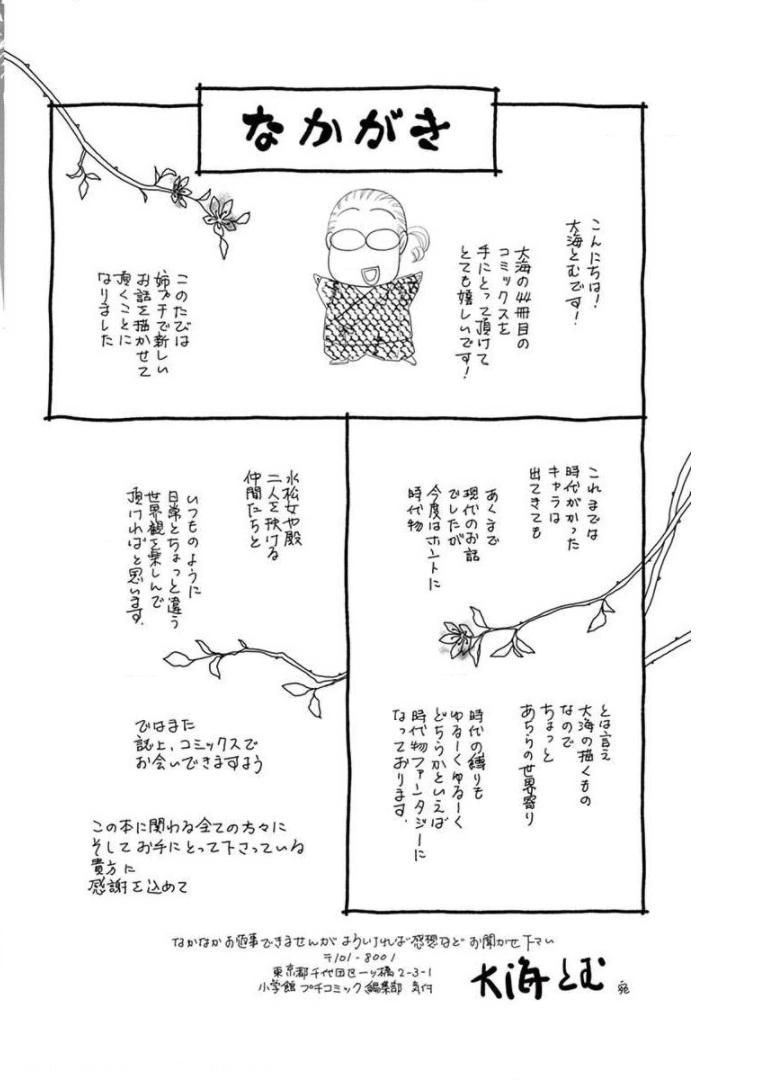 なかがき
こんにちは!
大海とむです!
大海の44冊目の
コミックスを
手にとって頂けて
とても嬉しいです!
このたびは
姉プチで新しい
お話を描かせて
頂くことに
なりました
これまでは
時代がかった
キャラは
出てきても
あくまで
現代のお話
でしたが
今度はホントに
時代物
とは言え
大海の描くもの
なので
ちょっと
あちらの世界寄り
時代の縛りも
ゆるーくゆるーく
どちらかといえば
時代物ファンタジーに
なっております.
水松女や殿
二人を助ける
仲間たちと
いつものように
日常とちょっと違う
世界観を楽しんで
頂ければと思います.
ではまた
誌上、コミックスで
お会いできますよう
この本に関わる全ての方々に
そしてお手にとって下さっている
貴方に
感謝を込めて
なかなかお返事できませんが よろしければ感想など お聞かせ下さい
〒101-8001
東京都千代田区一ツ橋2-3-1
小学館 プチコミック編集部 気付
大海とむ 宛